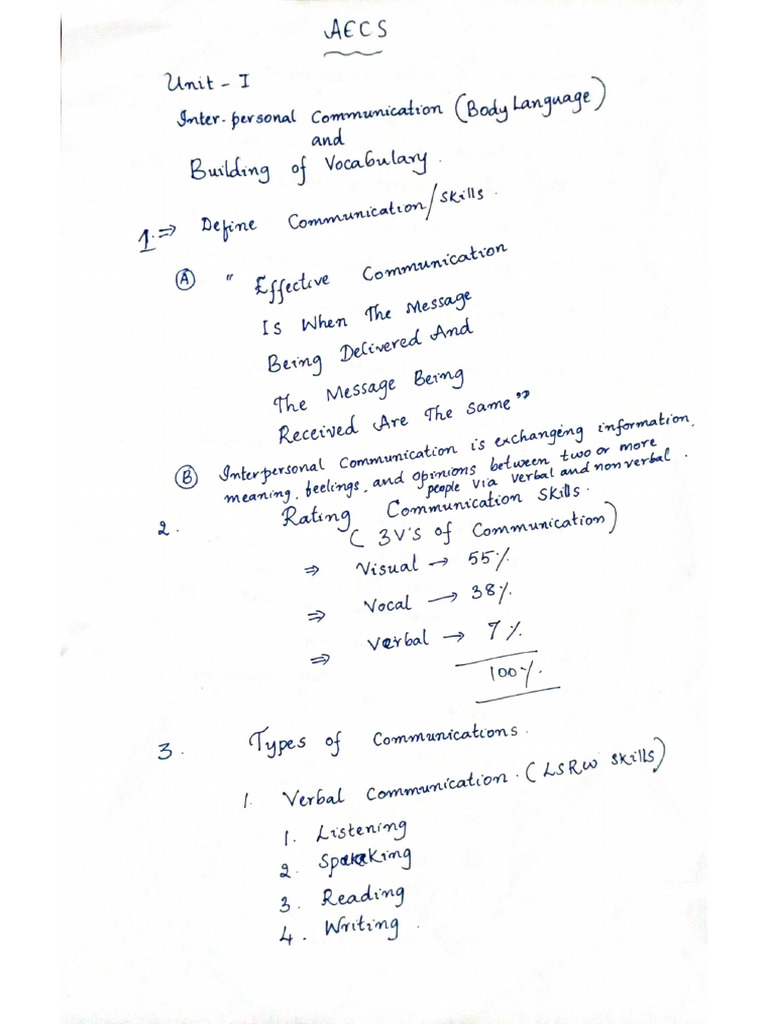 AECS
Unit - I
Inter-personal Communication (Body Language)
and
Building of Vocabulary.
1. ⇒ Define Communication/skills.
Ⓐ " Effective Communication
Is When The Message
Being Delivered And
The Message Being
Received Are The Same"
Ⓑ Interpersonal Communication is exchanging information,
meaning, feelings, and opinions between two or more
people via verbal and non verbal.
2. Rating Communication Skills.
( 3V's of Communication)
⇒ Visual → 55%
⇒ Vocal → 38%
⇒ Verbal → 7%
100%
3. Types of Communications.
1. Verbal Communication. (LSRW skills)
1. Listening
2. Speaking
3. Reading
4. Writing.